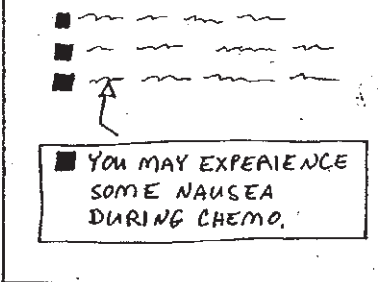 YOU MAY EXPERIENCE
SOME NAUSEA
DURING CHEMO.